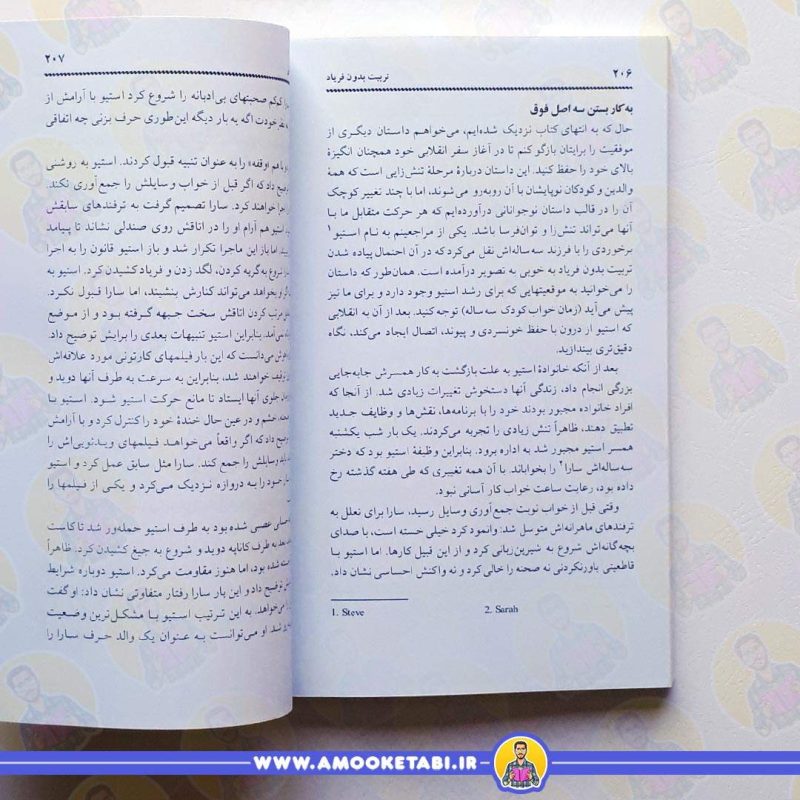 ۲۰۶
تربیت بدون فریاد
به کار بستن سه اصل فوق
حال که به انتهای کتاب نزدیک شده‌ایم، می‌خواهم داستان دیگری از
موفقیت را برایتان بازگو کنم تا در آغاز سفر انقلابی خود همچنان انگیزهٔ
بالای خود را حفظ کنید. این داستان دربارهٔ مرحلهٔ تنش‌زایی است که همهٔ
والدین و کودکان نوپایشان با آن روبه‌رو می‌شوند، اما با چند تغییر کوچک
آن را در قالب داستان نوجوانانی درآورده‌ایم که هر حرکت متقابل ما با
آنها می‌تواند تنش‌زا و توان‌فرسا باشد. یکی از مراجعینم به نام استیو۱
برخوردی را با فرزند سه‌ساله‌اش نقل می‌کرد که در آن احتمال پیاده شدن
تربیت بدون فریاد به خوبی به تصویر درآمده است. همان‌طور که داستان
را می‌خوانید به موقعیتهایی که برای رشد استیو وجود دارد و برای ما نیز
پیش می‌آید (زمان خواب کودک سه ساله) توجه کنید. بعد از آن به انقلابی
که استیو از درون با حفظ خونسردی و پیوند، اتصال ایجاد می‌کند، نگاه
دقیق‌تری بیندازید.
بعد از آنکه خانوادهٔ استیو به علت بازگشت به کار همسرش جابه‌جایی
بزرگی انجام داد، زندگی آنها دستخوش تغییرات زیادی شد. از آنجا که
افراد خانواده مجبور بودند خود را با برنامه‌ها، نقش‌ها و وظایف جدید
تطبیق دهند، ظاهراً تنش زیادی را تجربه می‌کردند. یک بار شب یکشنبه
همسر استیو مجبور شد به اداره برود. بنابراین وظیفهٔ استیو بود که دختر
سه‌ساله‌اش سارا۲ را بخواباند. با آن همه تغییری که طی هفته گذشته رخ
داده بود، رعایت ساعت خواب کار آسانی نبود.
وقتی قبل از خواب نوبت جمع‌آوری وسایل رسید، سارا برای تعلل به
ترفندهای ماهرانه‌اش متوسل شد: وانمود کرد خیلی خسته است، با صدای
بچه‌گانه‌اش شروع به شیرین‌زبانی کرد و از این قبیل کارها. اما استیو با
قاطعیتی باورنکردنی نه صحنه را خالی کرد و نه واکنش احساسی نشان داد.
1. Steve
2. Sarah
۲۰۷
کم‌کم صحبتهای بی‌ادبانه را شروع کرد استیو با آرامش از
خودت اگه یه بار دیگه این‌طوری حرف بزنی چه اتفاقی
با هم «وقفه» را به عنوان تنبیه قبول کردند. استیو به روشنی
داد که اگر قبل از خواب وسایلش را جمع‌آوری نکند،
اجرا خواهند کرد. سارا تصمیم گرفت به ترفندهای سابقش
استیو هم آرام او را در اتاقش روی صندلی نشاند تا پیامد
اما باز این ماجرا تکرار شد و باز استیو قانون را به اجرا
شروع به گریه کردن، لگد زدن و فریاد کشیدن کرد. استیو به
بخواهد می‌تواند کنارش بنشیند، اما سارا قبول نکرد.
مرتب کردن اتاقش سخت جبهه گرفته بود و از موضع
نمی‌آمد. بنابراین استیو تنبیهات بعدی را برایش توضیح داد.
می‌دانست که این بار فیلمهای کارتونی مورد علاقه‌اش
خواهند شد، بنابراین به سرعت به طرف آنها دوید و
جلوی آنها ایستاد تا مانع حرکت استیو شود. استیو با
خشم و در عین حال خندهٔ خود را کنترل کرد و با آرامش
داد که اگر واقعاً می‌خواهد فیلمهای ویدئویی‌اش را
وسایلش را جمع کند. سارا مثل سابق عمل کرد و استیو
خود را به دروازه نزدیک می‌کرد و یکی از فیلمها را
عصبی شده بود به طرف استیو حمله‌ور شد تا کاست
به طرف کاناپه دوید و شروع به جیغ کشیدن کرد. ظاهراً
شده بود، اما هنوز مقاومت می‌کرد. استیو دوباره شرایط
توضیح داد و این بار سارا رفتار متفاوتی نشان داد: او گفت
می‌خواهد. به این ترتیب استیو با مشکل‌ترین وضعیت
شد. او می‌توانست به عنوان یک والد حرف سارا را
WWW.AMOOKETABI.IR